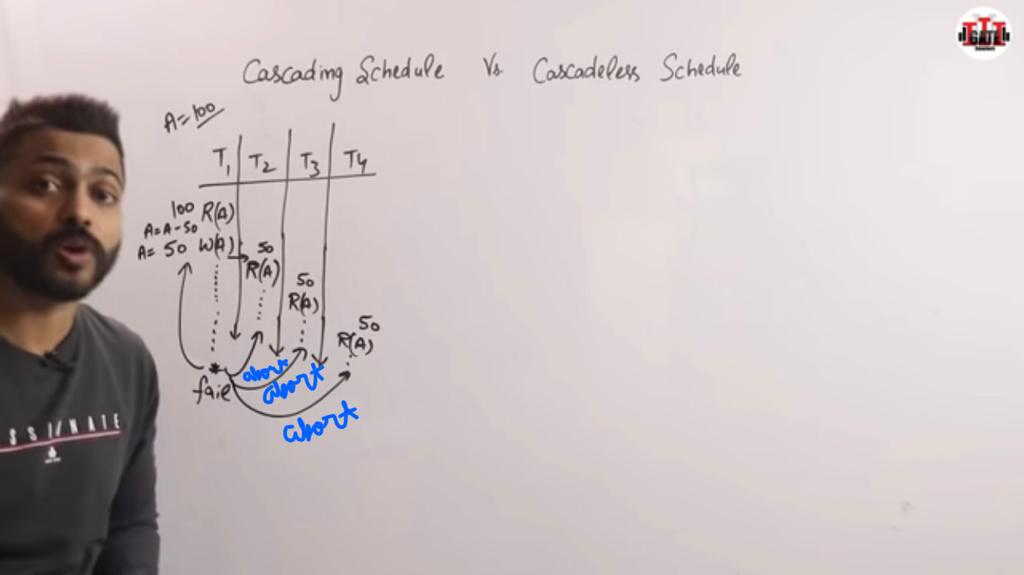 Cascading Schedule Vs. Cascadeless Schedule
A=100
T1 T2 T3 T4
100 R(A)
A=A-50
A= 50 W(A)
50
R(A)
50
R(A)
50
R(A)
fail
abort
abort
abort
GATE
SSIONATE